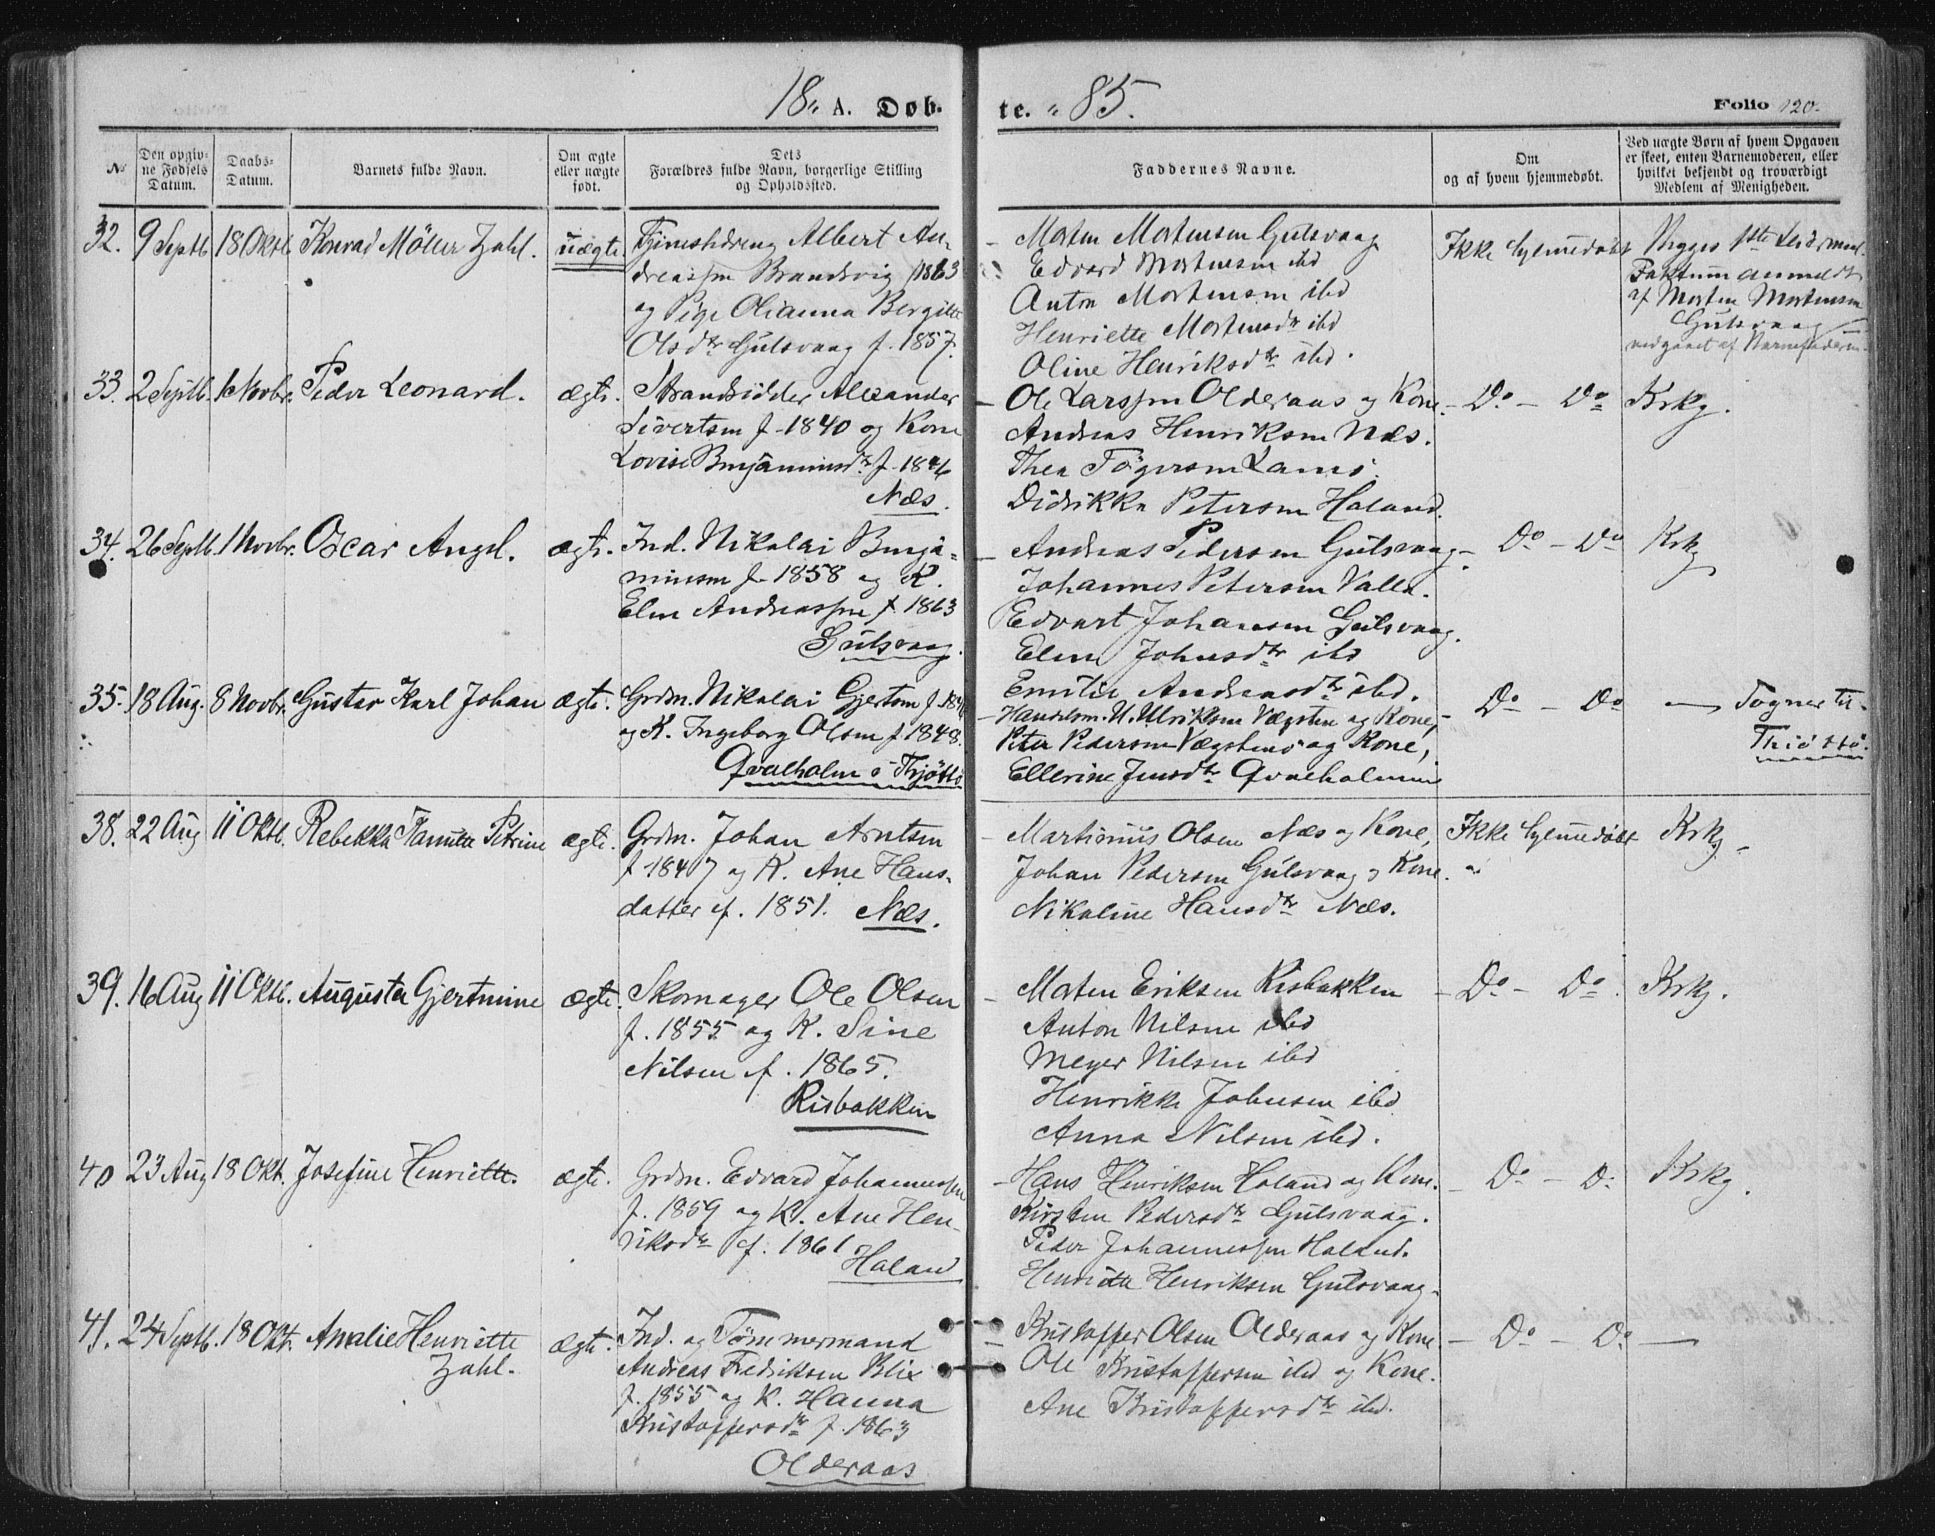 18 A. Døb-
te. 85.
Folio 120.
№
Den opgiv-
ne Fødsels
Datum.
Daabs-
Datum.
Barnets fulde Navn.
Om ægte
eller uægte
født.
Dets
Forældres fulde Navn, borgerlige Stilling
og Opholdssted.
Faddernes Navne.
Om
og af hvem hjemmedøbt.
Ved uægte Børn af hvem Opgaven
er skeet, enten Barnemoderen, eller
hvilket bekjendt og troværdigt
Medlem af Menigheden.
32. 9 Septb 18 Oktb Konrad Möller Zahl. uægte.
Tjenestedreng Albert An-
dreassen Brandsvig f 1863
og Pige Olianna Bergitte
Olsdtr Gulsvaag f. 1857.
Morten Mortensen Gulsvaag
Edvard Mortensen ibd
Anton Mortensen ibd
Henriette Mortensdtr ibd
Oline Henriksdtr ibd.
Ikke hjemmedøbt
Begges 1ste Leiermaal.
Faktum anmeldt
af Morten Mortensen
Gulsvaag
vedgaaet af Barnefaderen
33. 2 Septb. 1 Novbr. Peder Leonard. ægte.
Strandsidder Alexander
Sivertsen f. 1840 og Kone
Lovise Benjaminsdtr f. 1846
Næs.
Ole Larssen Olderaas og Kone.
Andreas Henriksen Næs.
Thea Tögersen
Didrikka Petersen Haland.
Do - Do
Krkg.
34. 26 Septb. 1 Novbr. Oscar Angel. ægte.
Ind. Nikolai Benja-
minsen f. 1858 og K.
Elen Andreassen f 1863
Gulsvaag.
Andreas Pedersen Gulsvaag
Johannes Petersen Valla.
Edvart Johansen Gulsvaag.
Elen Johnsdtr ibd
Emilie Andreasdtr ibd.
Do - Do
Krkg
35. 18 Aug. 8 Novbr. Gustav Karl Johan ægte.
Grdm. Nikolai Gjertsen f.
og K. Ingeborg Olsen f 1848.
Qvalholm i Thjøttø
Handelsm. U. Ulriksen Vægsten og Kone,
Peter Pedersen Vægstenö og Kone,
Ellerine Jensdtr Qvaleholmen
Do - Do
— Sogner til
Thiöttö.
38. 22 Aug 11 Oktb. Rebekka Petrine ægte.
Grdm. Johan Arntsen
f. 1847 og K. Ane Hans-
datter f. 1851. Næs.
Martinius Olsen Næs og Kone,
Johan Pedersen Gulsvaag og Kone.
Nikoline Hansdtr Næs.
Ikke hjemmedøbt
Krkg.
39. 16 Aug 11 Oktb. Augusta Gjertmine ægte.
Skomager Ole Olsen
f. 1855 og K. Sine
Nilsen f. 1865.
Risbakken
Morten Eriksen Risbakken
Anton Nilsen ibd
Meyer Nilsen ibd
Henrikke Johnsen ibd
Anna Nilsen ibd.
Do - Do.
Krkg.
40 23 Aug 18 Okt. Josefine Henriette. ægte.
Grdm. Edvard Johannessen
f. 1859 og K. Ane Hen-
riksdtr f. 1861
Haland
Hans Henriksen Haland og Kone.
Kirsten Pedersdtr Gulsvaag.
Peder Johannessen Haland.
Henriette Henriksen Gulsvaag.
Do - D.
Krkg.
41. 24 Septb. 18 Okt. Amalie Henriette
Zahl. ægte.
Ind. og Tömmermand
Andreas Fredriksen Blix
f. 1855 og K. Hanna
Kristoffersdtr f. 1863
Olderaas
Kristoffer Olsen Olderaas og Kone
Ole Kristoffersen ibd og Kone.
Ane Kristoffersdtr ibd.
- Do - Do. —